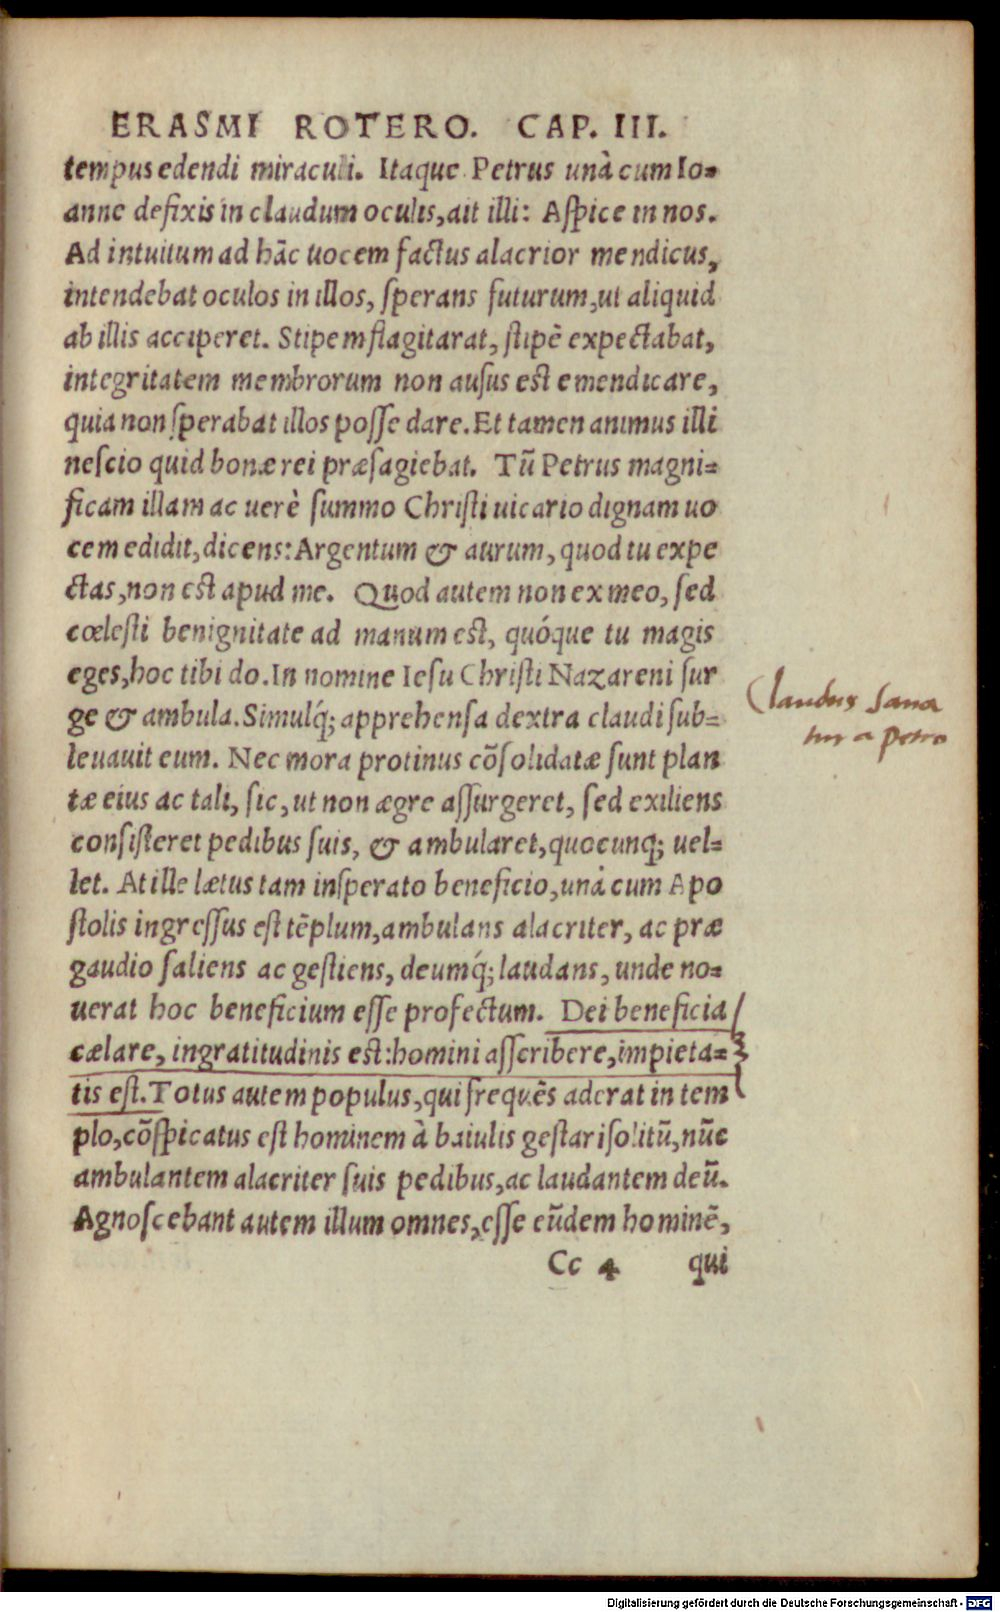 ERASMI ROTERO. CAP. III.
tempus edendi miraculi. Itaque Petrus unà cum Io=
anne defixis in claudum oculis, ait illi: Aspice in nos.
Ad intuitum ad hãc uocem factus alacrior mendicus,
intendebat oculos in illos, sperans futurum, ut aliquid
ab illis acciperet. Stipem flagitarat, stipẽ expectabat,
integritatem membrorum non ausus est emendicare,
quia non sperabat illos posse dare. Et tamen animus illi
nescio quid bonæ rei præsagiebat. Tũ Petrus magni=
ficam illam ac uerè summo Christi uicario dignam uo
cem edidit, dicens: Argentum & aurum, quod tu expe
ctas, non est apud me. Quod autem non ex meo, sed
cœlesti benignitate ad manum est, quóque tu magis
eges, hoc tibi do. In nomine Iesu Christi Nazareni sur
ge & ambula. Simulq́; apprehensa dextra claudi sub=
leuauit eum. Nec mora protinus cõsolidatæ sunt plan
tæ eius ac tali, sic, ut non ægre assurgeret, sed exiliens
consisteret pedibus suis, & ambularet, quocunq; uel=
let. At ille lætus tam insperato beneficio, unà cum Apo
stolis ingressus est tẽplum, ambulans alacriter, ac præ
gaudio saliens ac gestiens, deumq́; laudans, unde no=
uerat hoc beneficium esse profectum. Dei beneficia
cælare, ingratitudinis est: homini asscribere, impieta=
tis est. Totus autem populus, qui frequẽs aderat in tem
plo, cõspicatus est hominem à baiulis gestari solitũ, nũc
ambulantem alacriter suis pedibus, ac laudantem deũ.
Agnoscebant autem illum omnes, esse eũdem hominẽ,
Cc 4 qui
Claudus sana
tur a petro
Digitalisierung gefördert durch die Deutsche Forschungsgemeinschaft - DFG